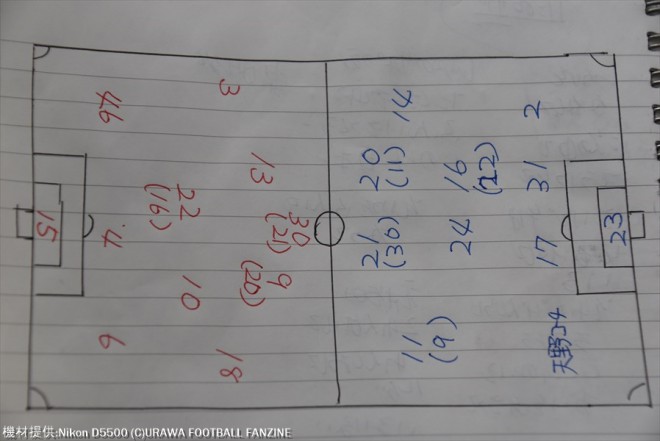 3
46
13
22
(16)
30
(21)
15
4
9
(20)
10
18
6
14
2
20
(11)
16
(22)
31
21
(30)
24
17
23
11
(9)
天野コーチ
機材提供:Nikon D5500 (C)URAWA FOOTBALL FANZINE